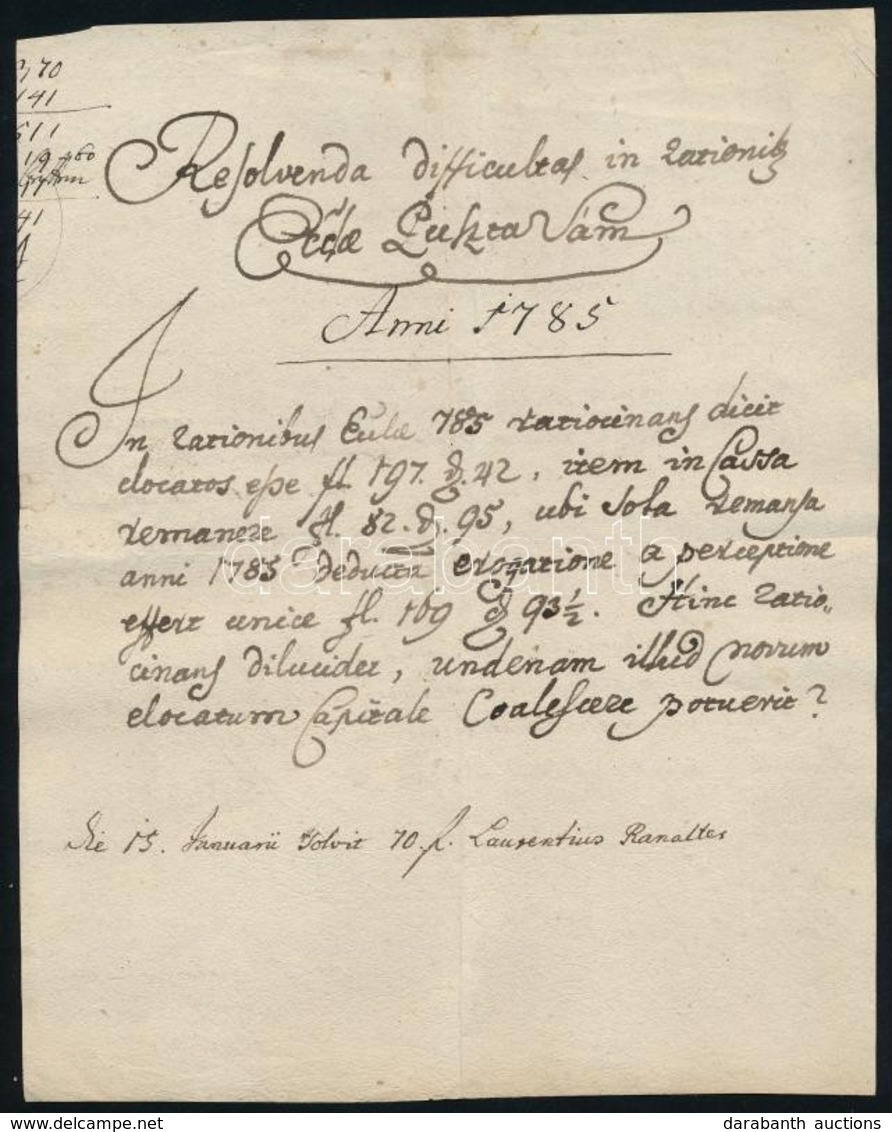 70
141
511
41
Resolvenda difficultas in rationib9
Ecclæ Puszta Vám
Anni 1785
In rationibus Eccliæ 785 ratiocinans dicit
elocatos esse fl. 197. d. 42, item in Cassa
remanere fl. 82. d. 95, ubi sola remansa
anni 1785 deducta erogatione a perceptione
effert unice fl. 169 d 93½. Hinc ratio„
cinans dilucidet, undenam illud novum
elocatum Capitale Coalescere potuerit?
Die 15. Januarii solvit 70 f. Laurentius Ranalter
darabanth
www.delcampe.net
darabanth auctions